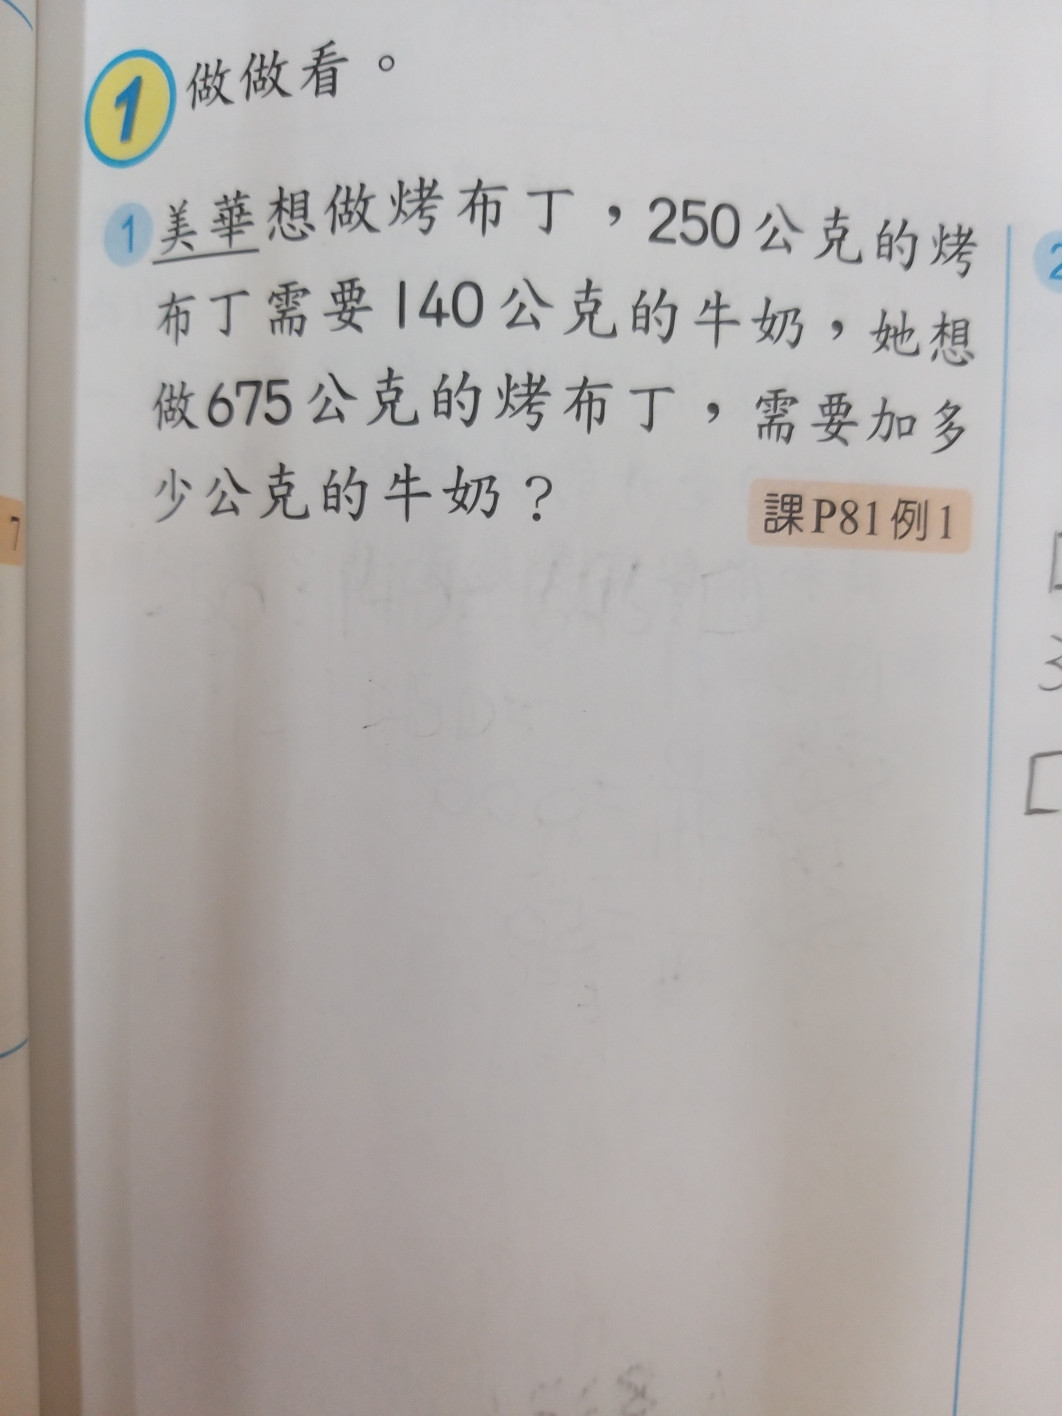 1 做做看。
1 美華想做烤布丁，250公克的烤
布丁需要140公克的牛奶，她想
做675公克的烤布丁，需要加多
少公克的牛奶？
課P81例1
2
7